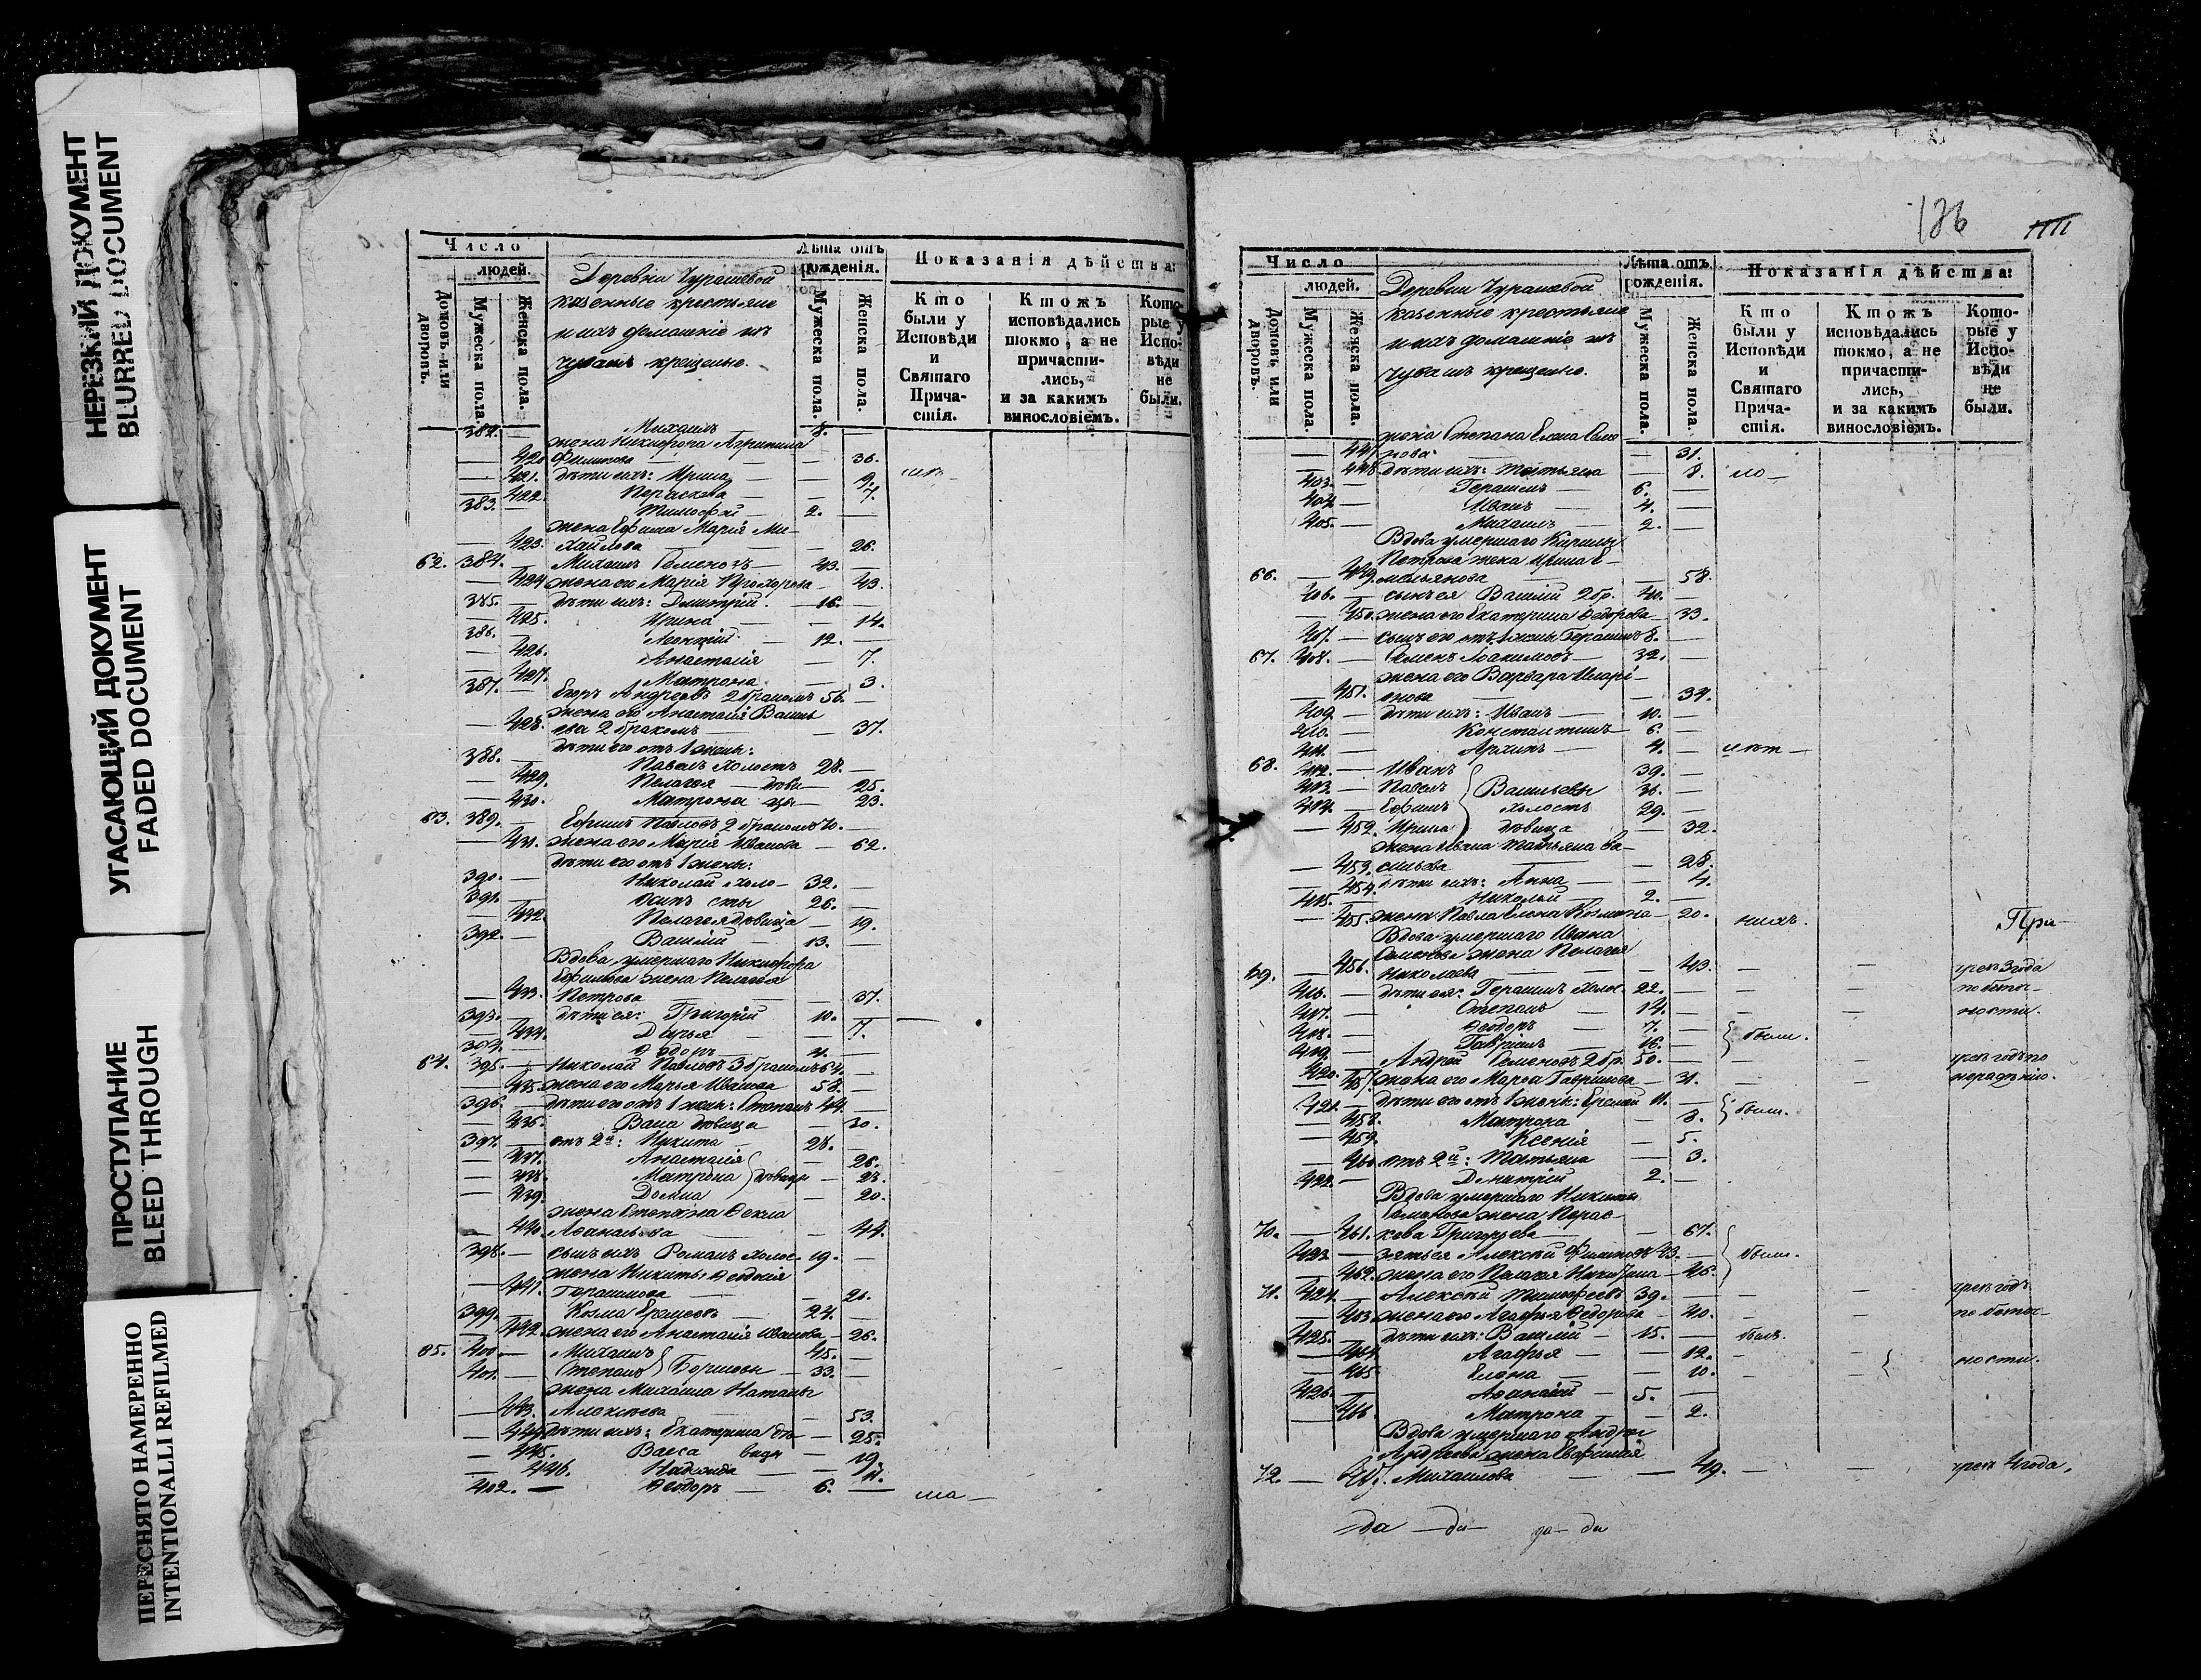 НЕРЕЗКИЙ ДОКУМЕНТ
BLURRED DOCUMENT
УГАСАЮЩИЙ ДОКУМЕНТ
FADED DOCUMENT
ПРОСТУПАНИЕ
BLEED THROUGH
ПЕРЕСНЯТО НАМЕРЕННО
INTENTIONALLI REFILMED
Число
людей.
Домовъ или дворовъ.
Мужеска пола.
Женска пола.
Деревни Чурашевой
казенные крестьяне
и ихъ домашніе изъ
чувашъ крещеные.
Лѣта отъ рожденія.
Мужеска пола.
Женска пола.
Показанія дѣйства:
Кто были у Исповѣди и Святаго Причастія.
Ктожъ исповѣдались токмо, а не причастились, и за какимъ винословіемъ.
Которые у Исповѣди не были.
382. — Михаилъ 8. —
жена Никифора
— 420. — 36.
— 421. дѣти ихъ: Ирина — 9.
— 422. Параскева — 7.
383. — Тимофей 2. —
жена Ефима Марія Ми-
— 423. хайлова — 26.
62. 384. — Михаилъ Семеновъ 43. —
— 424. жена его Марія Прохорова — 43.
385. — дѣти ихъ: Дмитрій 16. —
— 425. Ирина — 14.
386. — Леонтій 12. —
— 426. Анастасія — 7.
— 427. Матрона — 3.
387. — Егоръ Андреевъ 2 бракомъ 56. —
жена его Анастасія Василь
— 428. ева 2 бракомъ — 37.
дѣти его отъ 1 жены:
388. — Павелъ холостъ 28. —
— 429. Пелагея — 25.
— 430. Матрона — 23.
63. 389. — Ефимъ Павловъ 2 бракомъ 70. —
— 431. жена его Марія Иванова — 62.
дѣти его отъ 1 жены:
390. — Николай холо- 32. —
391. — Осипъ сты 26. —
— 432. Пелагея дѣвица — 19.
392. — Василій 13. —
Вдова умершаго Никифора
Ефимова жена Пелагея
— 433. Петрова — 37.
393. — дѣти ея: Григорій 10. —
— 434. Дарья — 7.
394. — Ѳедоръ 4. —
64. 395. — Николай Павловъ 3 бракомъ 64. —
— 435. жена его Марья Иванова — 58.
396. — дѣти его отъ 1 жены: Степанъ 44. —
— 436. Васса дѣвица — 30.
397. — отъ 2й: Никита 28. —
— 437. Анастасія — 26.
— 438. Матрона дѣвицы — 23.
— 439. Домна — 20.
жена Степана Ѳекла
— 440. Аѳанасьева — 44.
398. — сынъ ихъ Романъ холос. 19. —
жена Никиты Ѳеодосія
— 441. Герасимова — 26.
399. — Козма 24. —
— 442. жена его Анастасія Иванова — 26.
65. 400. — Михаилъ 45. —
401. — Степанъ Борисовы 33. —
жена Михаила Наталья
— 443. Алексѣева — 53.
— 444. дѣти ихъ: Екатерина дѣ- — 25.
— 445. Васса вицы — 19.
— 446. Надежда — 11.
402. — Ѳеодоръ 6. —
186
Число
людей.
Домовъ или дворовъ.
Мужеска пола.
Женска пола.
Деревни Чурашевой
казенные крестьяне
и ихъ домашніе изъ
чувашъ крещеные.
Лѣта отъ рожденія.
Мужеска пола.
Женска пола.
Показанія дѣйства:
Кто были у Исповѣди и Святаго Причастія.
Ктожъ исповѣдались токмо, а не причастились, и за какимъ винословіемъ.
Которые у Исповѣди не были.
жена Степана Елена
— 447. — 31.
— 448. дѣти ихъ: Татьяна — 8.
403. — Герасимъ 6. —
404. — Иванъ 4. —
405. — Михаилъ 2. —
Вдова умершаго Кирилы
Петрова жена Ирина Е-
66. — 449. мельянова — 58.
406. — сынъ ея Василій 2 бр. 40. —
— 450. жена его Екатерина Ѳедорова — 33.
407. — сынъ его отъ 1 жены Герасимъ 8. —
67. 408. — Семенъ Іоакимовъ 32. —
жена его Варвара Иларі-
— 451. онова — 34.
409. — дѣти ихъ: Иванъ 10. —
410. — Константинъ 6. —
411. — Архипъ 4. —
68. 412. — Иванъ 39. —
413. — Павелъ Васильевы 36. —
414. — Ефимъ холостъ 29. —
— 452. Ирина дѣвица — 32.
жена Ивана Татьяна Ва-
— 453. сильева — 28.
— 454. дѣти ихъ: Анна — 4.
415. — Николай 2. —
— 455. жена Павла Елена Козмина — 20. нихъ. При-
Вдова умершаго Ивана
Семенова жена Пелагея
69. — 456. Николаева — 43. — — чрез 3 года
416. — дѣти ея: Герасимъ холос. 22. —
417. — Степанъ 14. — ности.
418. — Ѳеодоръ 7. —
419. — Гавріилъ 16. — были.
420. — Андрей Семеновъ 2 бр. 50. — чрез годъ по
— 457. жена его Марѳа Гаврилова — 31. нерадѣнію.
421. — дѣти его отъ 1 жены: Ермолай 11. — были.
— 458. Матрона — 8.
— 459. Ксенія — 5.
— 460. отъ 2й: Татьяна — 3.
422. — Димитрій 2. —
Вдова умершаго Никиты
Семенова жена Парас-
70. — 461. кева Григорьева — 67.
423. — зять ея Алексѣй Филиповъ 43. — были.
— 462. жена его Пелагея Никитина — 45.
71. 424. — Алексѣй Тимофеевъ 39. — чрез годъ
— 463. жена его Агафья Ѳедорова — 40.
425. — дѣти ихъ: Василій 15. — былъ.
— 464. Агафья — 12.
— 465. Елена — 10. ности.
426. — Аѳанасій 5. —
— 466. Матрона — 2.
Вдова умершаго Андрея
Андреева жена Евфимія
72. — 467. Михаилова — 49. — — чрез 4 года,
да — да — да — да